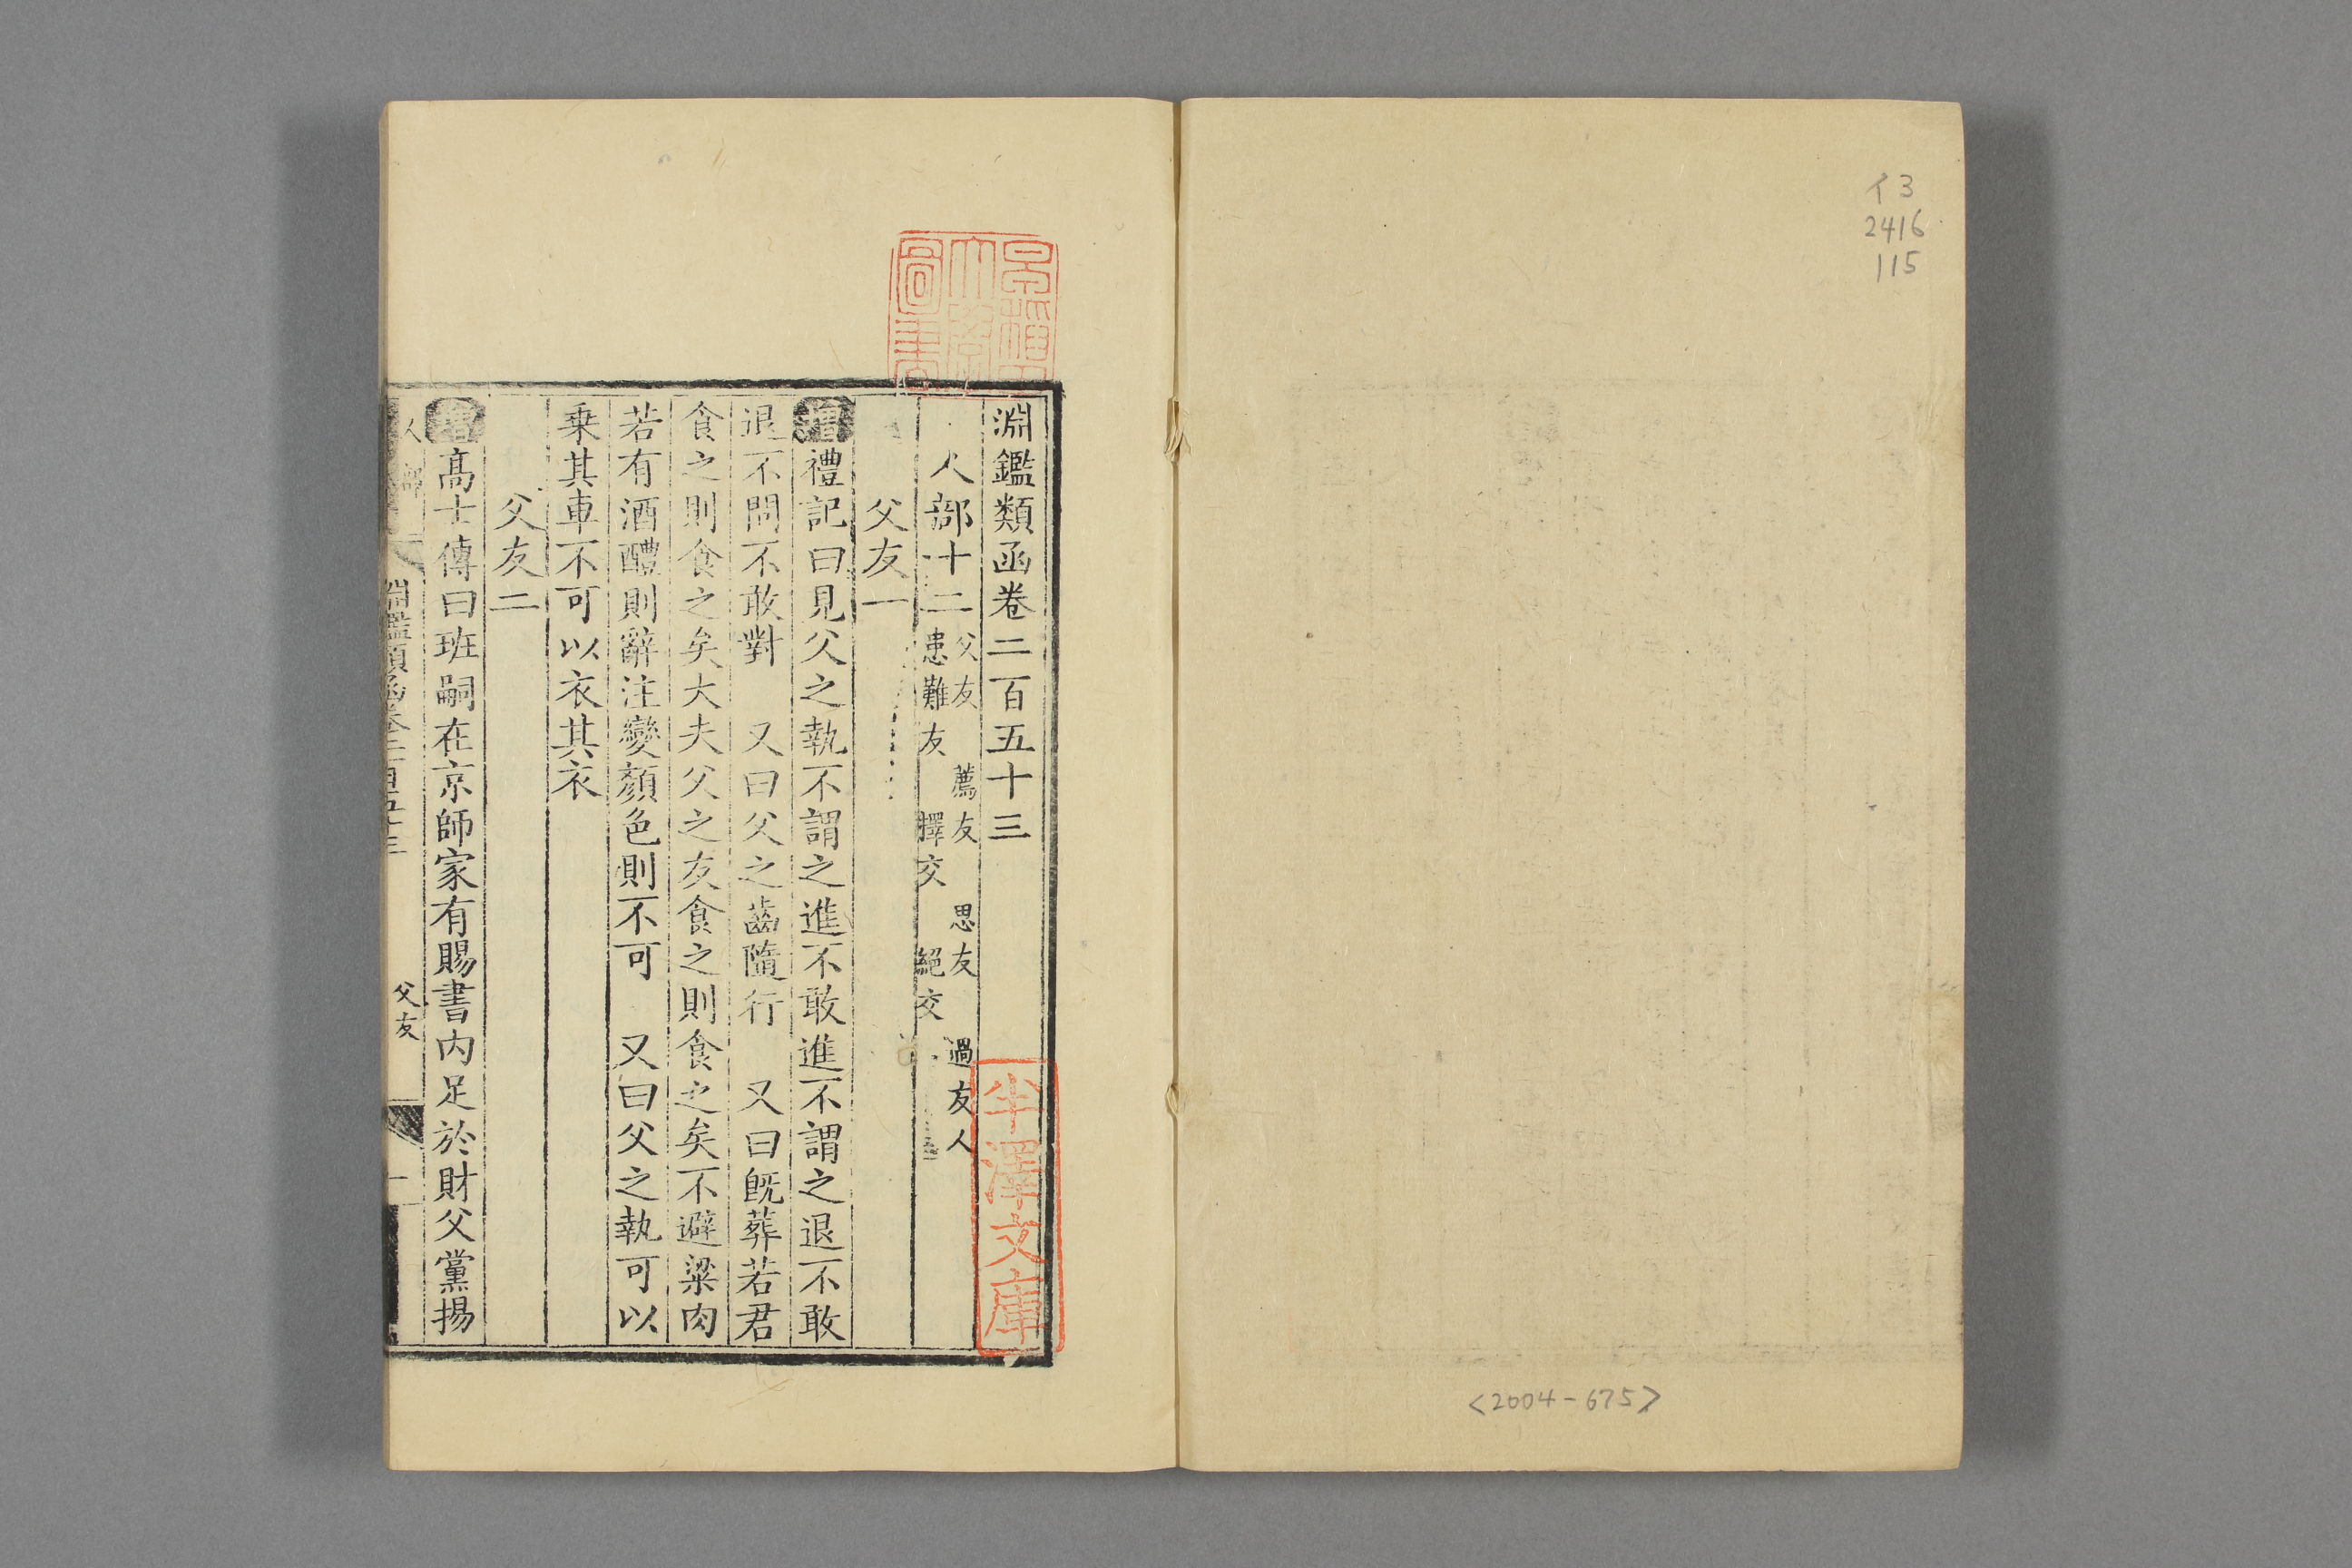 イ3
2416
115
<2004-675>
淵鑑類函卷二百五十三
人部十二
父友 薦友 思友 過友人
患難友 擇交 絕交
父友一
增禮記曰見父之執不謂之進不敢進不謂之退不敢
退不問不敢對 又曰父之齒隨行 又曰既葬若君
食之則食之矣大夫父之友食之則食之矣不避粱肉
若有酒醴則辭注變顏色則不可 又曰父之執可以
乗其車不可以衣其衣
父友二
增高士傳曰班嗣在京師家有賜書内足於財父黨揚
人部 淵鑑類函卷二百五十三 父友 一
半澤文庫
圖書